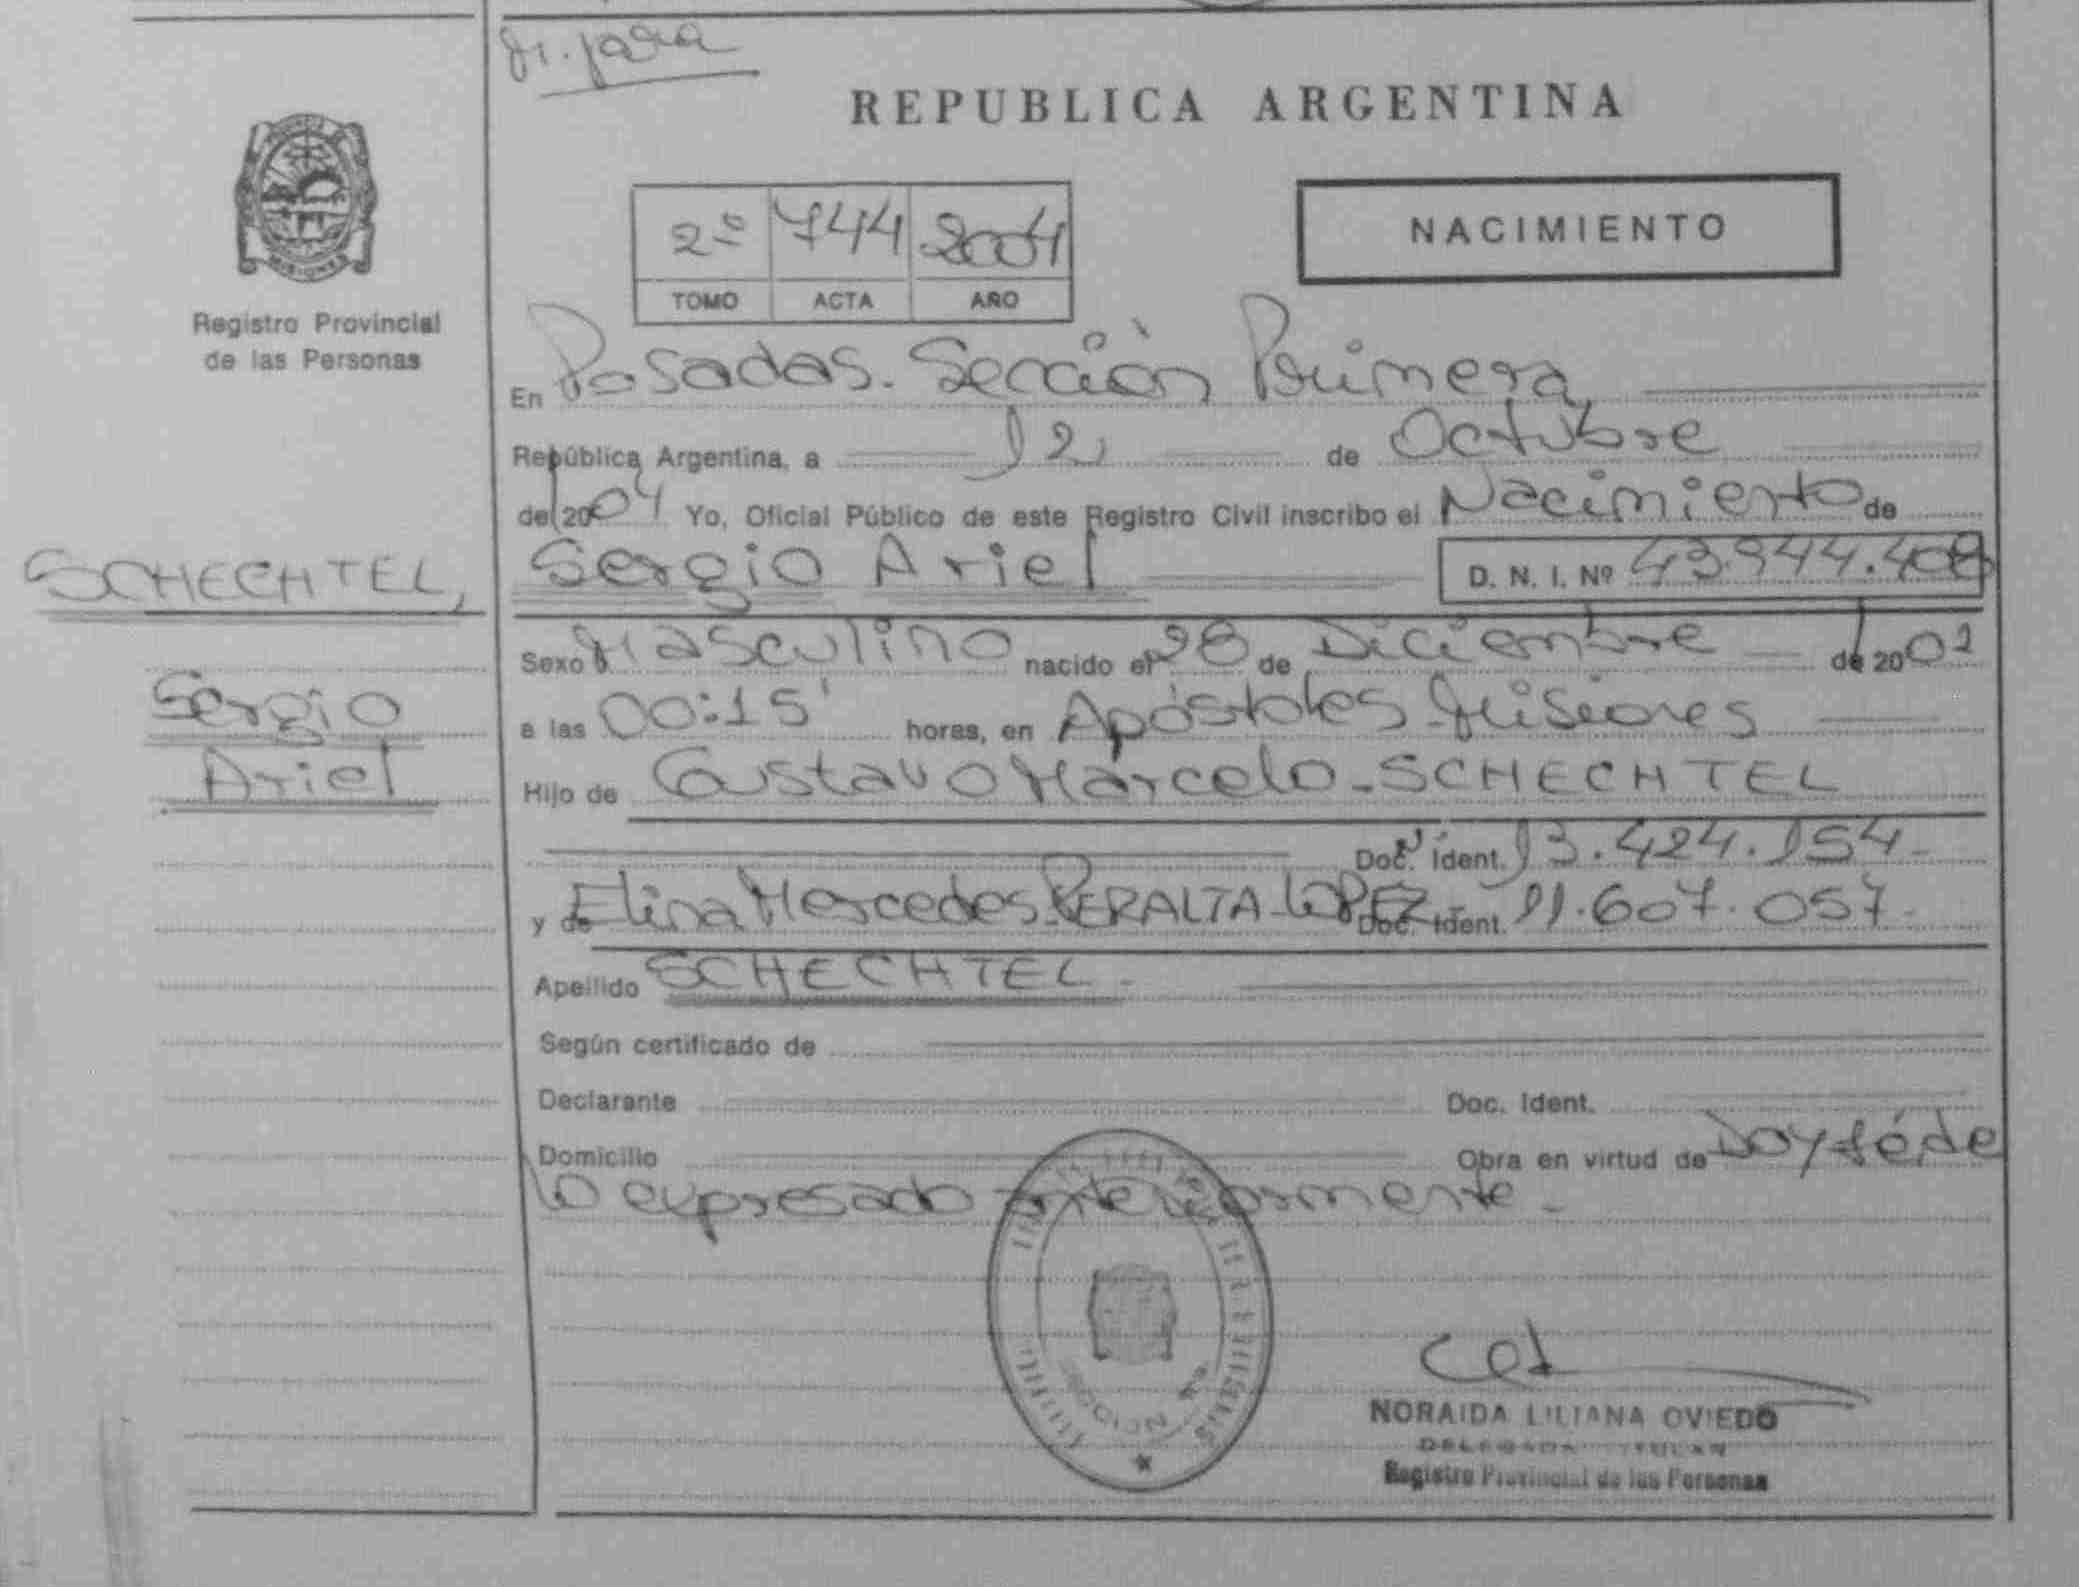 REPUBLICA ARGENTINA
MISIONES
Registro Provincial
de las Personas
2º 744 2004
TOMO ACTA AÑO
NACIMIENTO
En Posadas. Sección Primera
República Argentina, a 12 de Octubre
del 2004 Yo, Oficial Público de este Registro Civil inscribo el Nacimiento de
SCHECHTEL,
Sergio
Ariel
Sergio Ariel D. N. I. Nº 43.944.408
Sexo Masculino nacido el 28 de Diciembre de 2002
a las 00:15' horas, en Apóstoles Misiones
Hijo de Gustavo Marcelo - SCHECHTEL
Doc. Ident. 13.424.154-
y de Elina Mercedes PERALTA LOPEZ- Doc. Ident. 11.607.057-
Apellido SCHECHTEL-
Según certificado de
Declarante Doc. Ident.
Domicilio Obra en virtud de Doy fé de
lo expresado anteriormente-
NORAIDA LILIANA OVIEDO
DELEGADA TITULAR
Registro Provincial de las Personas